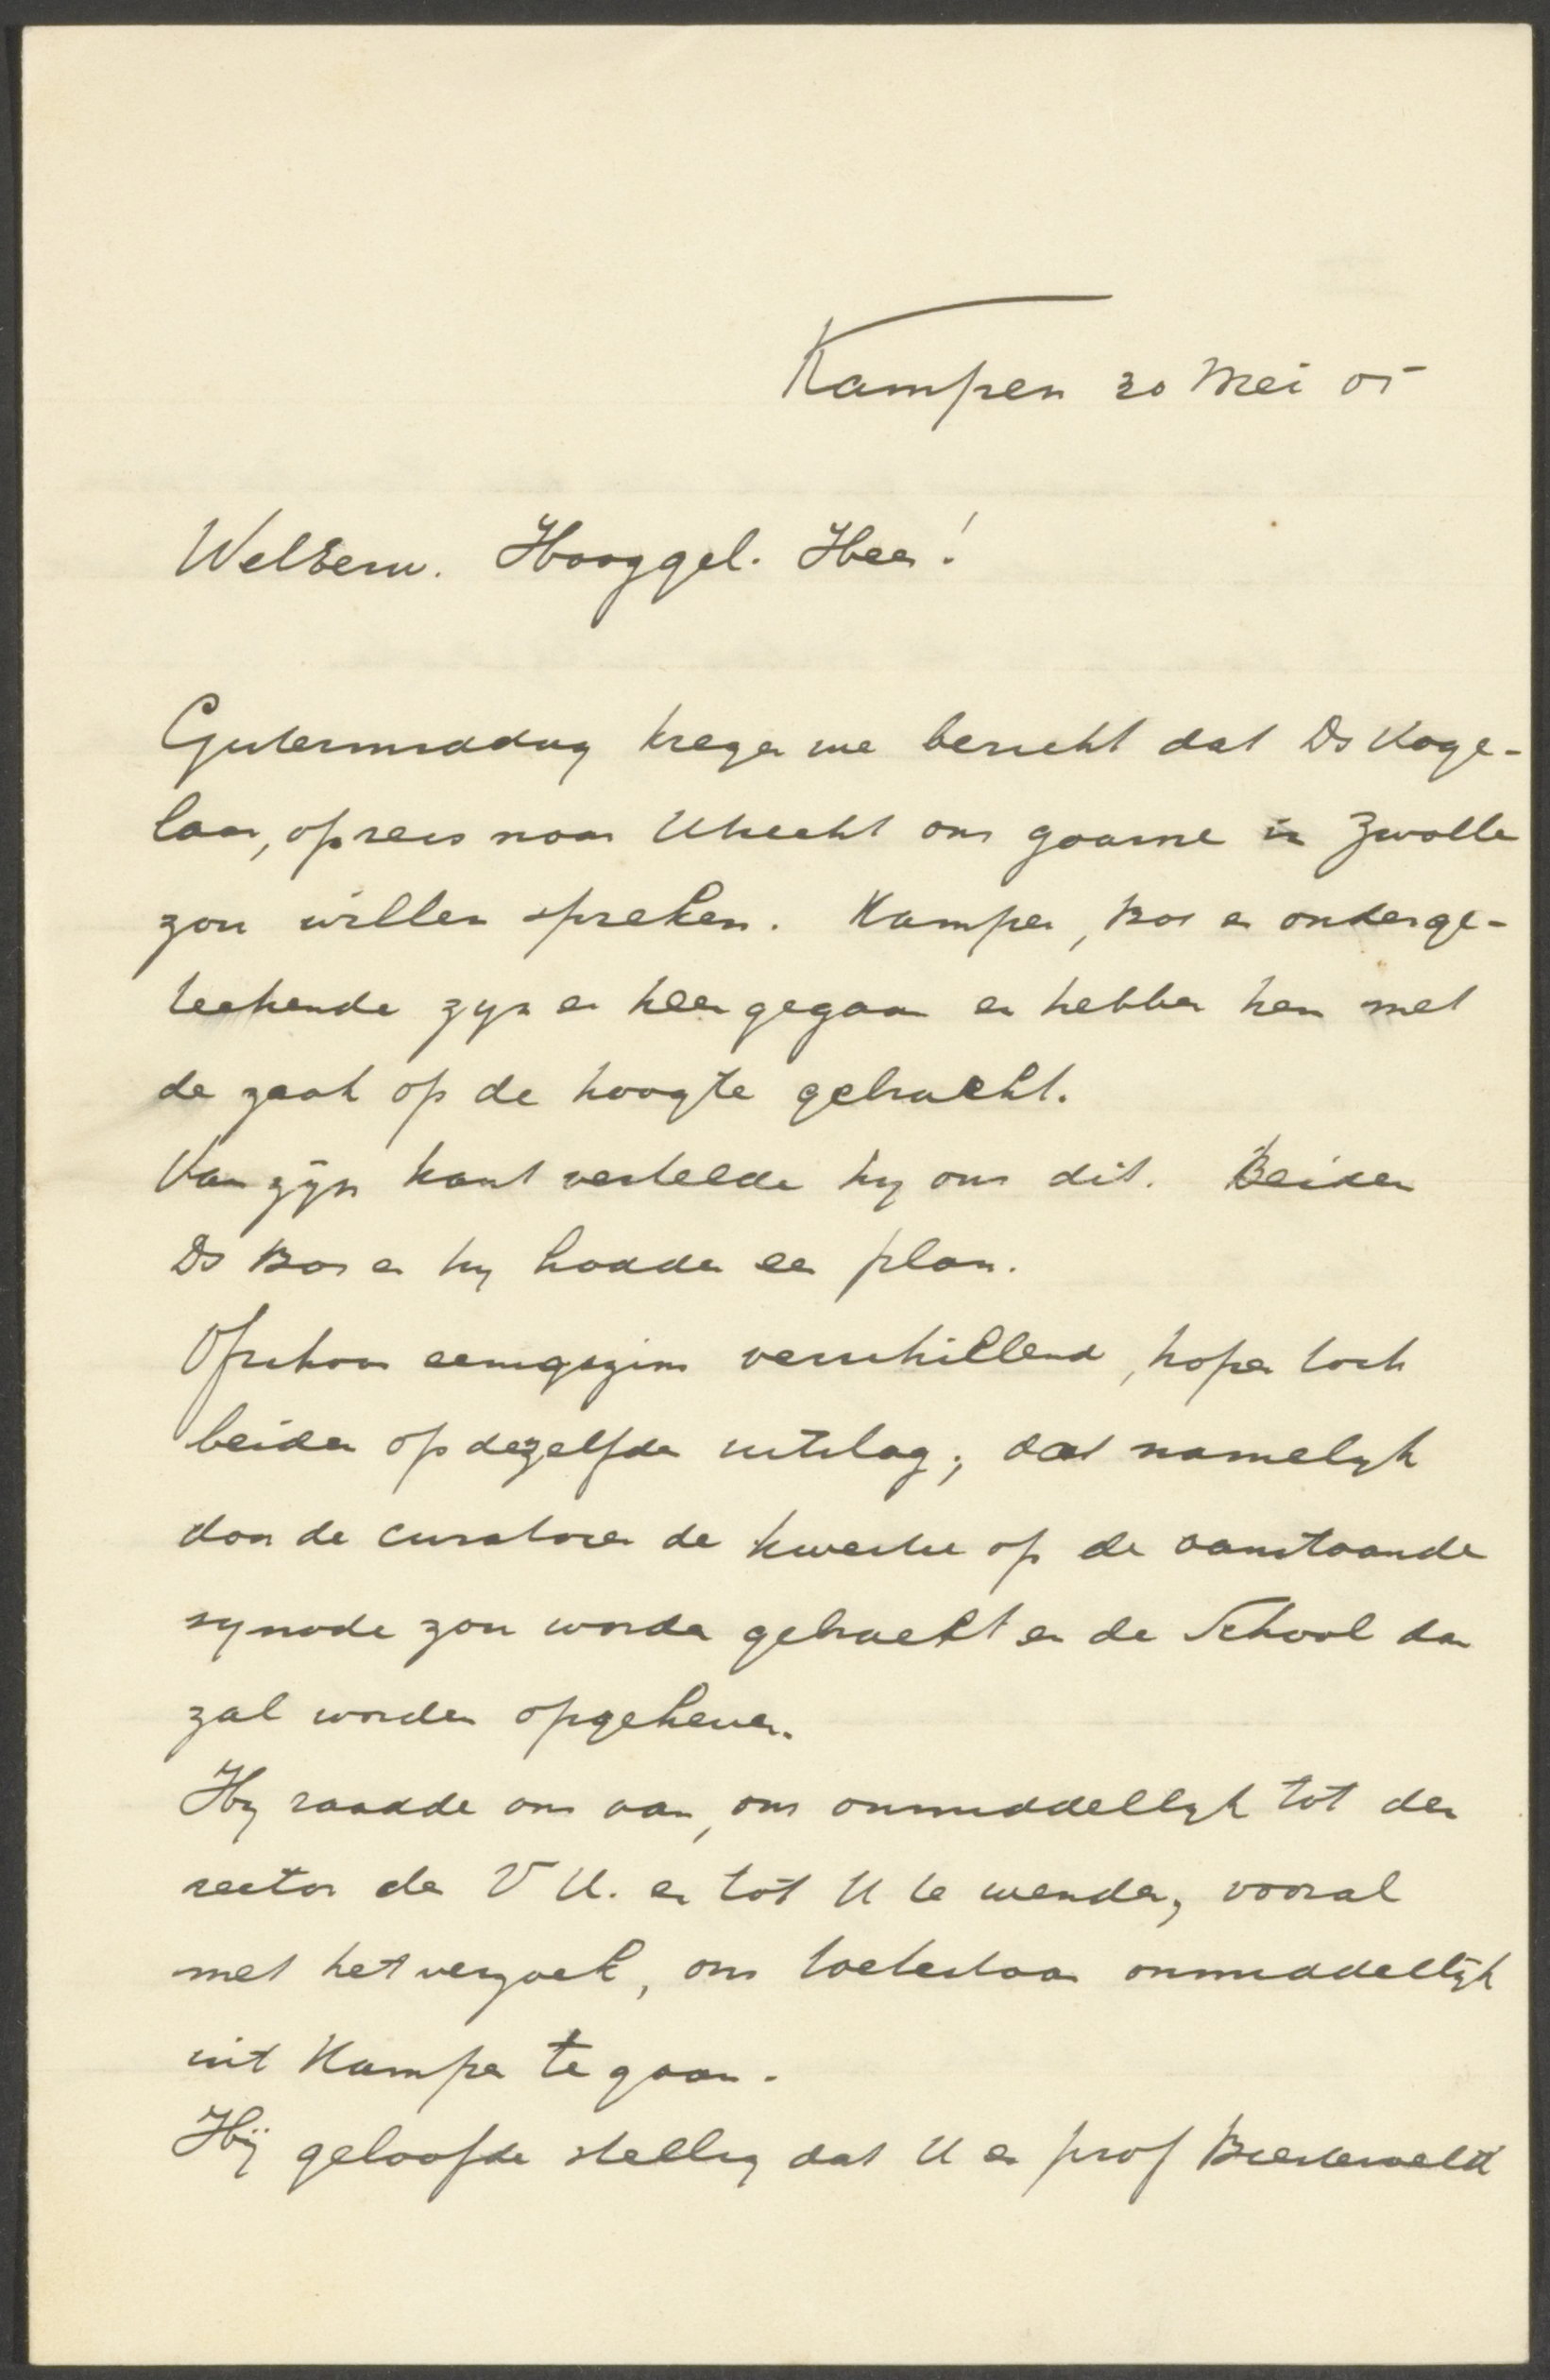 Kampen 30 Mei 05
WelEerw. Hooggel. Heer!
Gistermiddag kregen we bericht dat Ds Koge-
laar, op reis naar Utrecht ons gaarne in Zwolle
zou willen spreken. Kamper, Bos en onderge-
teekende zijn er heen gegaan en hebben hem met
de zaak op de hoogte gebracht.
Van zijn kant vertelde hij ons dit. Beiden
Ds Bos en hij hadden een plan.
Ofschoon eenigszins verschillend, hopen toch
beiden op dezelfde uitslag; dat namelijk
door de curatoren de kwestie op de aanstaande
synode zou worden gebracht en de School dan
zal worden opgeheven.
Hij raadde ons aan, ons onmiddellijk tot den
rector der V U. en tot U te wenden, vooral
met het verzoek, ons toetestaan onmiddellijk
uit Kampen te gaan.
Hij geloofde stellig dat U en prof Biesterveld